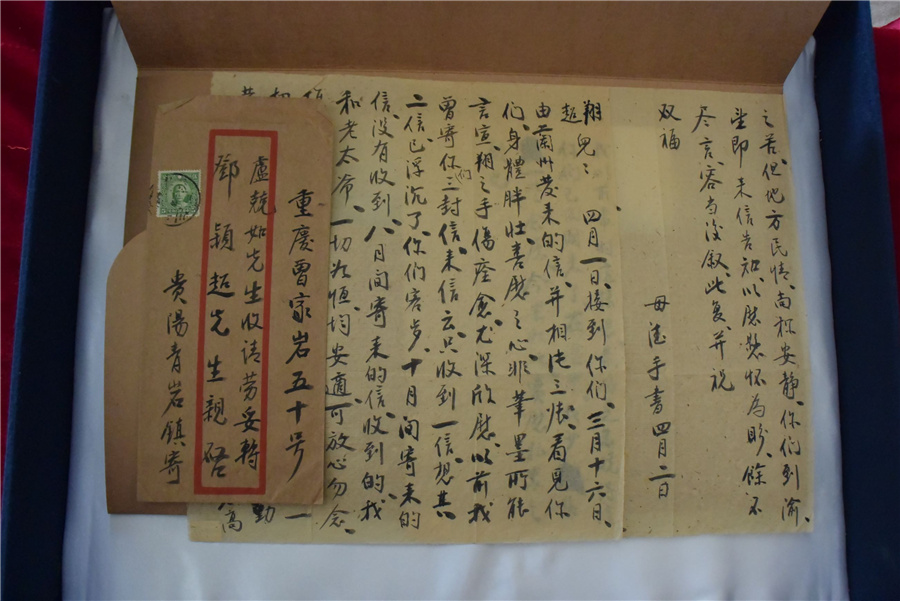 之苦但地方民情、尚称安静、你们到渝、
望即来信告知以慰愁怀为盼、餘不
尽言容当后叙此复、并祝
双福
母德手書 四月二日
翔超兒: 四月一日、接到你们、三月十六日、
由蘭州發来的信、并相片三张、看見你
们、身體胖壮喜慰之心非筆墨所能
言宣、翔之手傷痊愈尤深欣慰、以前我
曾寄你们三封信、来信云、只收到一信、想其
二信已浮沉了、你们客岁、十月间寄来的
信、没有收到、八月间寄来的信收到的、我
和老太爷、一切如恒、均安適、可放心勿念、
重慶曾家岩五十号
盧競如先生收請劳妥轉
鄧穎超先生親啟
貴陽青岩鎮寄